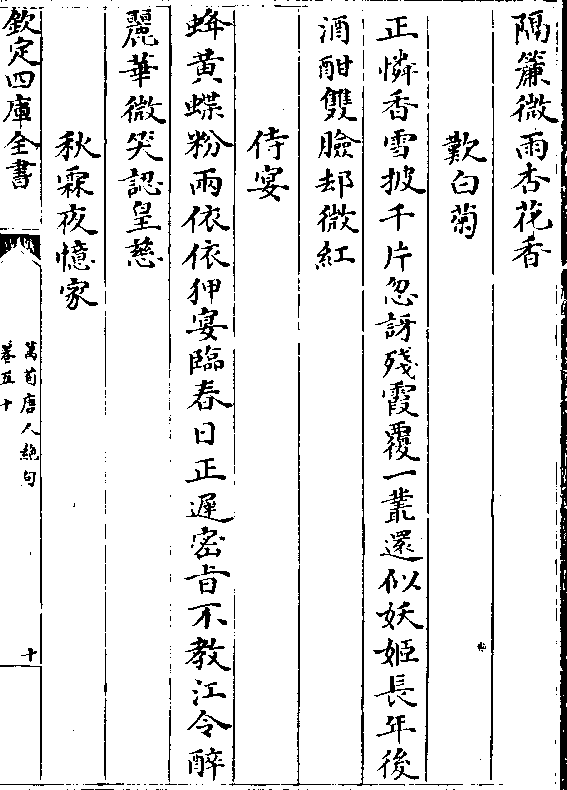 隔簾微雨杏花香
歎白菊
正憐香雪披千片忽訝殘霞覆一叢還似妖姬長年後
酒酣雙臉却微紅
侍宴
蜂黄蝶粉兩依依狎宴臨春日正遲密旨不教江令醉
麗華微笑認皇慈
秋霖夜憶家
欽定四庫全書
萬首唐人絶句
卷五十
十